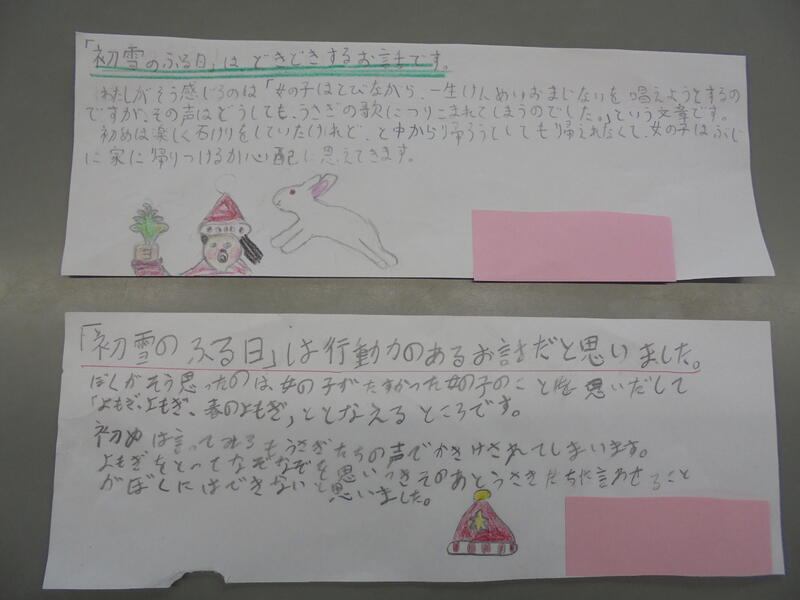 「初雪のふる日」は どきどきするお話です。
わたしがそう感じるのは「女の子はとびながら、一生けんめいおまじないを唱えようとするの
ですが、その声はどうしても、うさぎの歌につりこまれてしまうのでした。」という文章です。
初めは楽しく石けりをしていたけれど、と中から帰ろうとしても帰えれなくて、女の子はぶじ
に家に帰りつけるか心配に思えてきます。
「初雪のふる日」は行動力のあるお話だと思いました。
ぼくがそう思ったのは、女の子がたすかった女の子のことを思いだして
「よもぎ、よもぎ、春のよもぎ」ととなえるところです。
初めは言ってみるもうさぎたちの声でかきけされてしまいます。
よもぎをとってなぞなぞを思いつきそのあとうさぎたちに言わせること
がぼくにはできないと思いました。